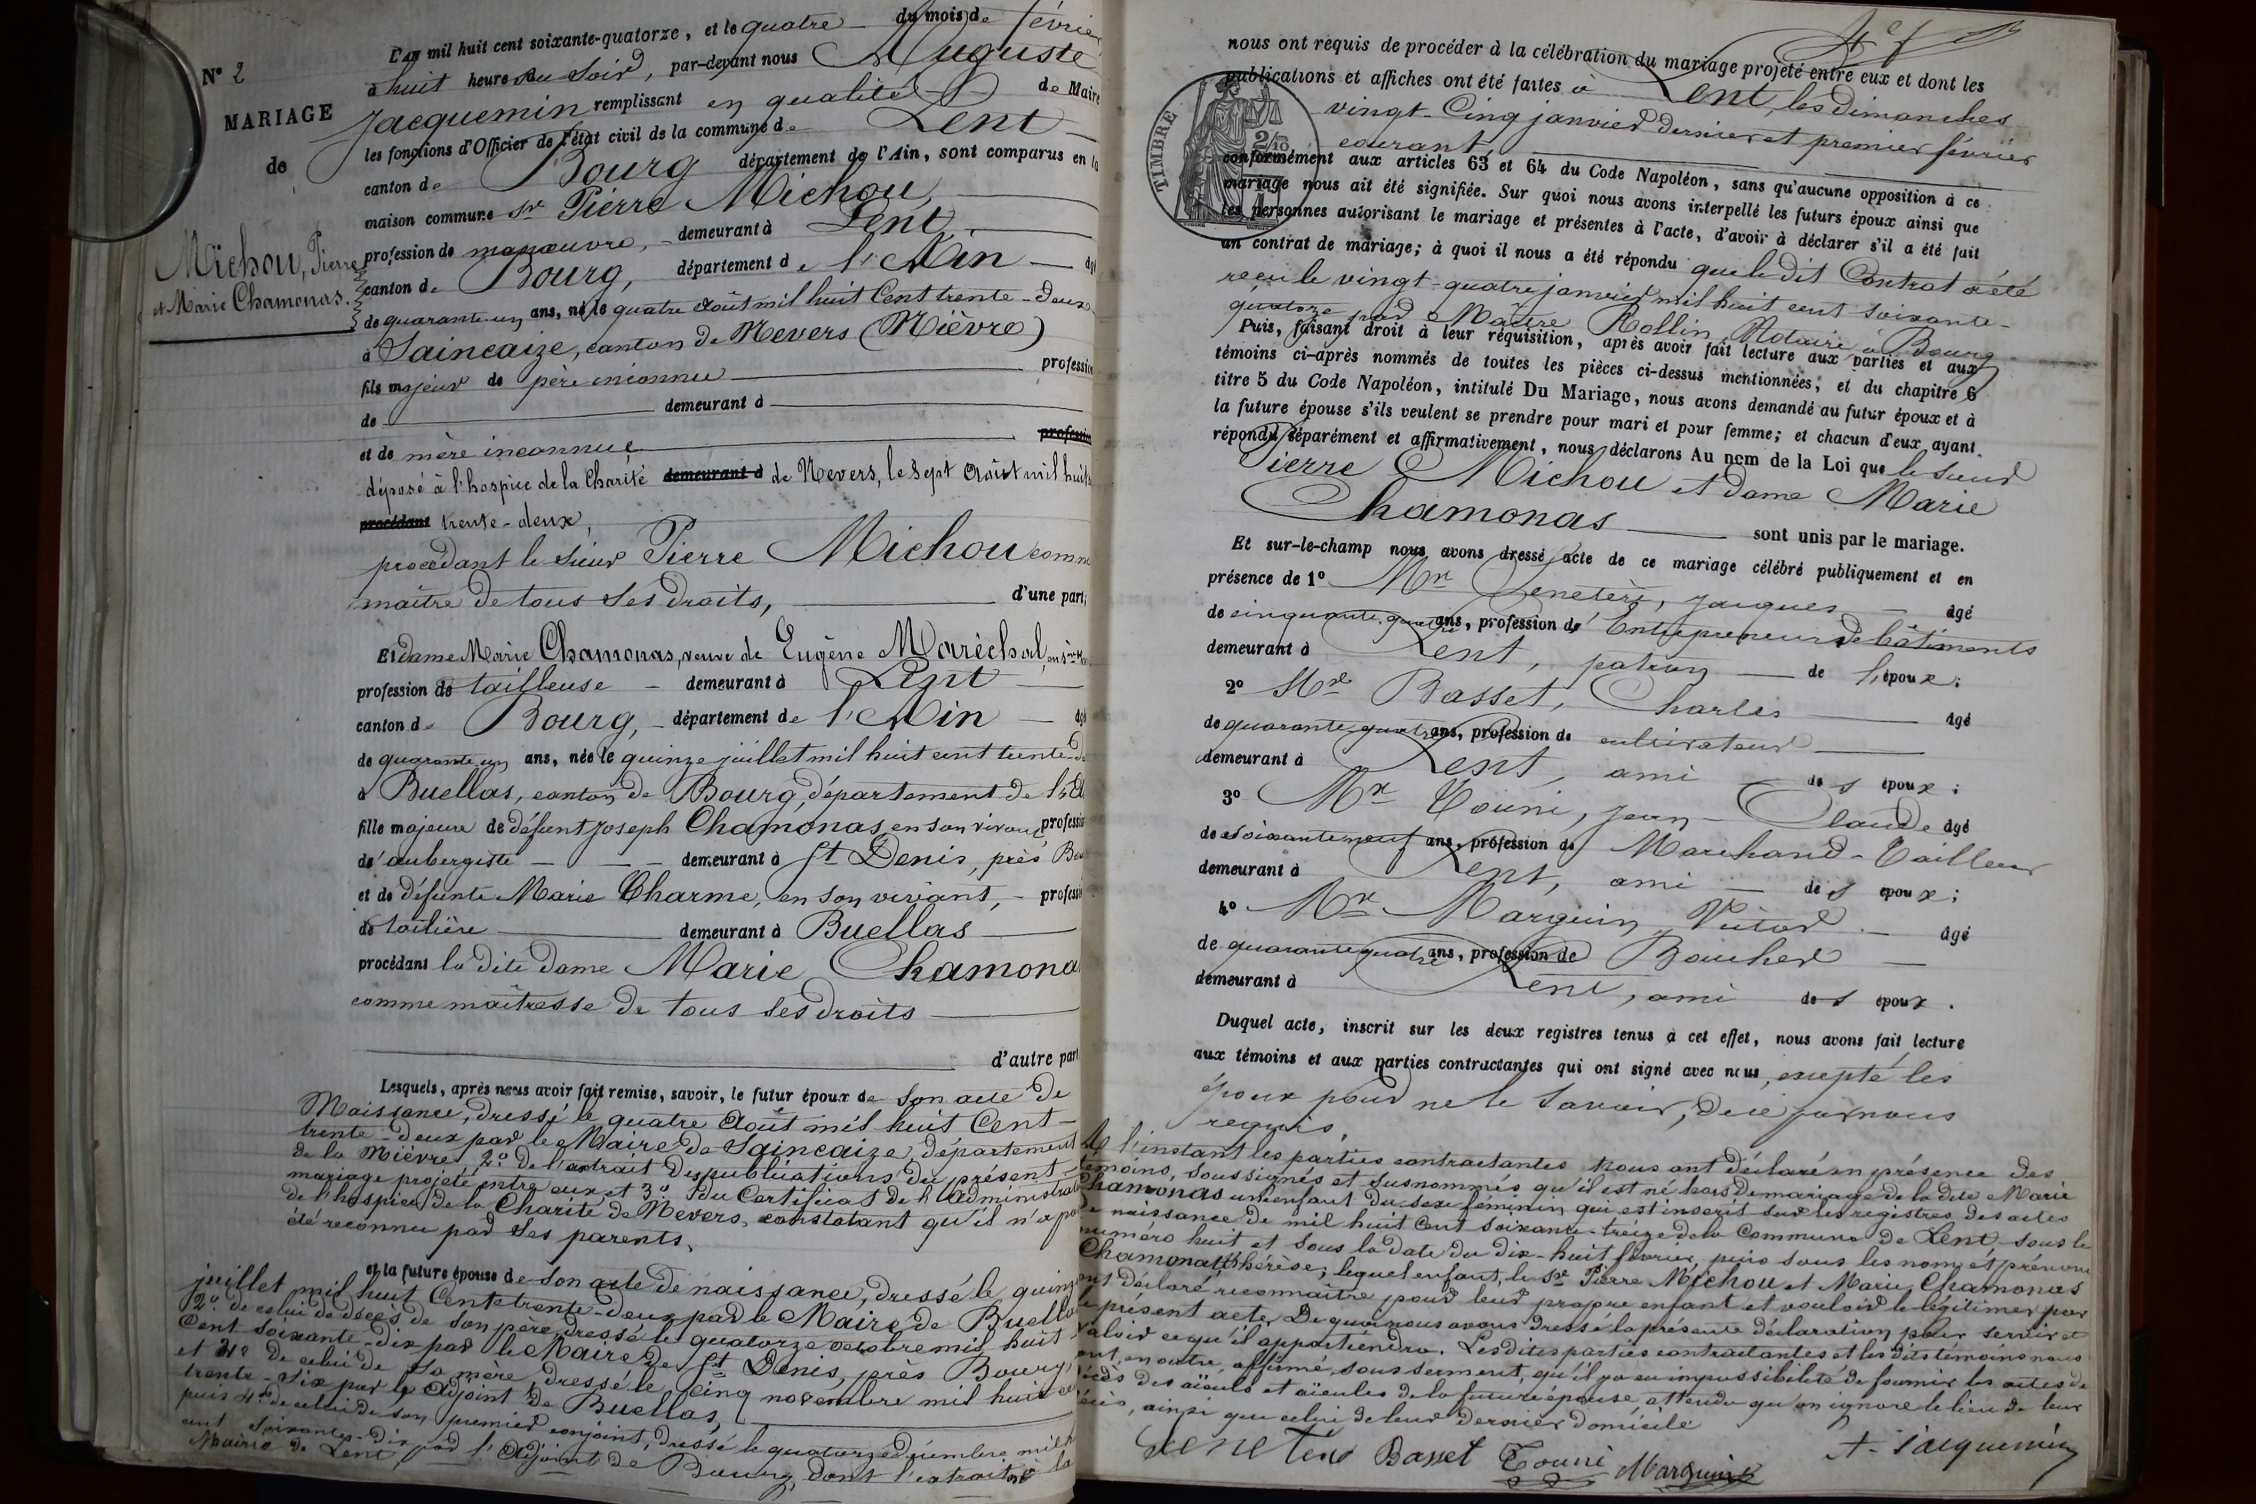 L'an mil huit cent soixante-quatorze, et le quatre du mois de février
N° 2
à huit heure du soir, par-devant nous Auguste
MARIAGE
Jacquemin remplissant en qualité de Maire
de
les fonctions d'Officier de l'état civil de la commune de Lent
canton de Bourg département de l'Ain, sont comparus en la
maison commune sr Pierre Michou,
Michou, Pierre
et Marie Chamonas.
profession de manœuvre, demeurant à Lent,
canton de Bourg, département de l'Ain âgé
de quarante-un ans, né le quatre août mil huit cent trente-deux
à Saincaize, canton de Nevers (Nièvre)
fils majeur de père inconnu profession
de demeurant à
et de mère inconnue profession
déposé à l'hospice de la Charité demeurant à de Nevers, le sept Août mil huit
procédant trente-deux,
procédant le sieur Pierre Michou comme
maître de tous ses droits, d'une part;
Et dame Marie Chamonas, veuve de Eugène Maréchal,
profession de tailleuse demeurant à Lent
canton de Bourg, département de l'Ain âgé
de quarante un ans, née le quinze juillet mil huit cent trente-d
à Buellas, canton de Bourg, département de l'A
fille majeure de défunt Joseph Chamonas, en son vivant profession
d'aubergiste demeurant à St Denis, près Bo
et de défunte Marie Charme, en son vivant, profession
de toilière demeurant à Buellas
procédant la dite dame Marie Chamonas
comme maîtresse de tous ses droits
d'autre part
Lesquels, après nous avoir fait remise, savoir, le futur époux de son acte de
Naissance, dressé le quatre Août mil huit Cent-
trente-deux par le Maire de Saincaize, département
de la Nièvre, 2° de l'extrait des publications du présent
mariage projeté entre eux et 3° du Certificat de l'administrat
de l'hospice de la Charité de Nevers, constatant qu'il n'a pas
été reconnu par ses parents.
et la future épouse de son acte de naissance, dressé le quinze
juillet mil huit Cent trente-deux par le Maire de Buellas
2° de celui de décès de son père, dressé le quatorze octobre mil huit
Cent soixante-dix par le Maire de St Denis, près Bourg,
et 3° de celui de sa mère, dressé le cinq novembre mil huit ce
trente-six par l'Adjoint de Buellas,
puis 4° de celui de son premier conjoint, dressé le quatorze décembre mil h
cent soixante-dix par l'Adjoint de Bourg, dont l'extrait à la
Mairie de Lent,
nous ont requis de procéder à la célébration du mariage projeté entre eux et dont les
publications et affiches ont été faites à Lent, les dimanches
vingt-Cinq janvier dernier et premier février
courant,
TIMBRE
2/10
conformément aux articles 63 et 64 du Code Napoléon, sans qu'aucune opposition à ce
mariage nous ait été signifiée. Sur quoi nous avons interpellé les futurs époux ainsi que
les personnes autorisant le mariage et présentes à l'acte, d'avoir à déclarer s'il a été fait
un contrat de mariage; à quoi il nous a été répondu que le dit Contrat a été
reçu le vingt-quatre janvier mil huit cent soixante-
quatorze par Maître Rollin Notaire à Bourg
Puis, faisant droit à leur réquisition, après avoir fait lecture aux parties et aux
témoins ci-après nommés de toutes les pièces ci-dessus mentionnées, et du chapitre 6
titre 5 du Code Napoléon, intitulé Du Mariage, nous avons demandé au futur époux et à
la future épouse s'ils veulent se prendre pour mari et pour femme; et chacun d'eux ayant
répondu séparément et affirmativement, nous déclarons Au nom de la Loi que le sieur
Pierre Michou et dame Marie
Chamonas sont unis par le mariage.
Et sur-le-champ nous avons dressé acte de ce mariage célébré publiquement et en
présence de 1° Mr Senetère, Jacques âgé
de cinquante-quatre ans, profession d'Entrepreneur de bâtiments
demeurant à Lent, patron de l'époux;
2° Mr Basset, Charles âgé
de quarante-quatre ans, profession de cultivateur
demeurant à Lent, ami des époux;
3° Mr Touni, Jean-Claude âgé
de soixante neuf ans, profession de Marchand-Tailleur
demeurant à Lent, ami des époux;
4° Mr Marguin, Victor âgé
de quarante quatre ans, profession de Boucher
demeurant à Lent, ami des époux.
Duquel acte, inscrit sur les deux registres tenus à cet effet, nous avons fait lecture
aux témoins et aux parties contractantes qui ont signé avec nous, excepté les
époux pour ne le savoir, de ce par nous
requis.
A l'instant les parties contractantes nous ont déclaré en présence des
témoins, soussignés et susnommés qu'il est né hors de mariage de la dite Marie
Chamonas un enfant du sexe féminin qui est inscrit sur les registres des actes
de naissance de mil huit cent soixante-treize de la Commune de Lent sous le
numéro huit et sous la date du dix-huit février, puis sous les nom et prénom
Chamonas Thérèse; lequel enfant, le sr Pierre Michou et Marie Chamonas
ont déclaré reconnaître pour leur propre enfant et vouloir le légitimer par
le présent acte. De quoi nous avons dressé la présente déclaration pour servir et
valoir ce qu'il appartiendra. Les dites parties contractantes et les dits témoins nous
ont, en outre, affirmé sous serment, qu'il y a eu impossibilité de fournir les actes de
décès des aïeuls et aïeules de la future épouse, attendu qu'on ignore le lieu de leur
décès, ainsi que celui de leur dernier domicile
Senetere Basset Touni Marguin A. Jacquemin